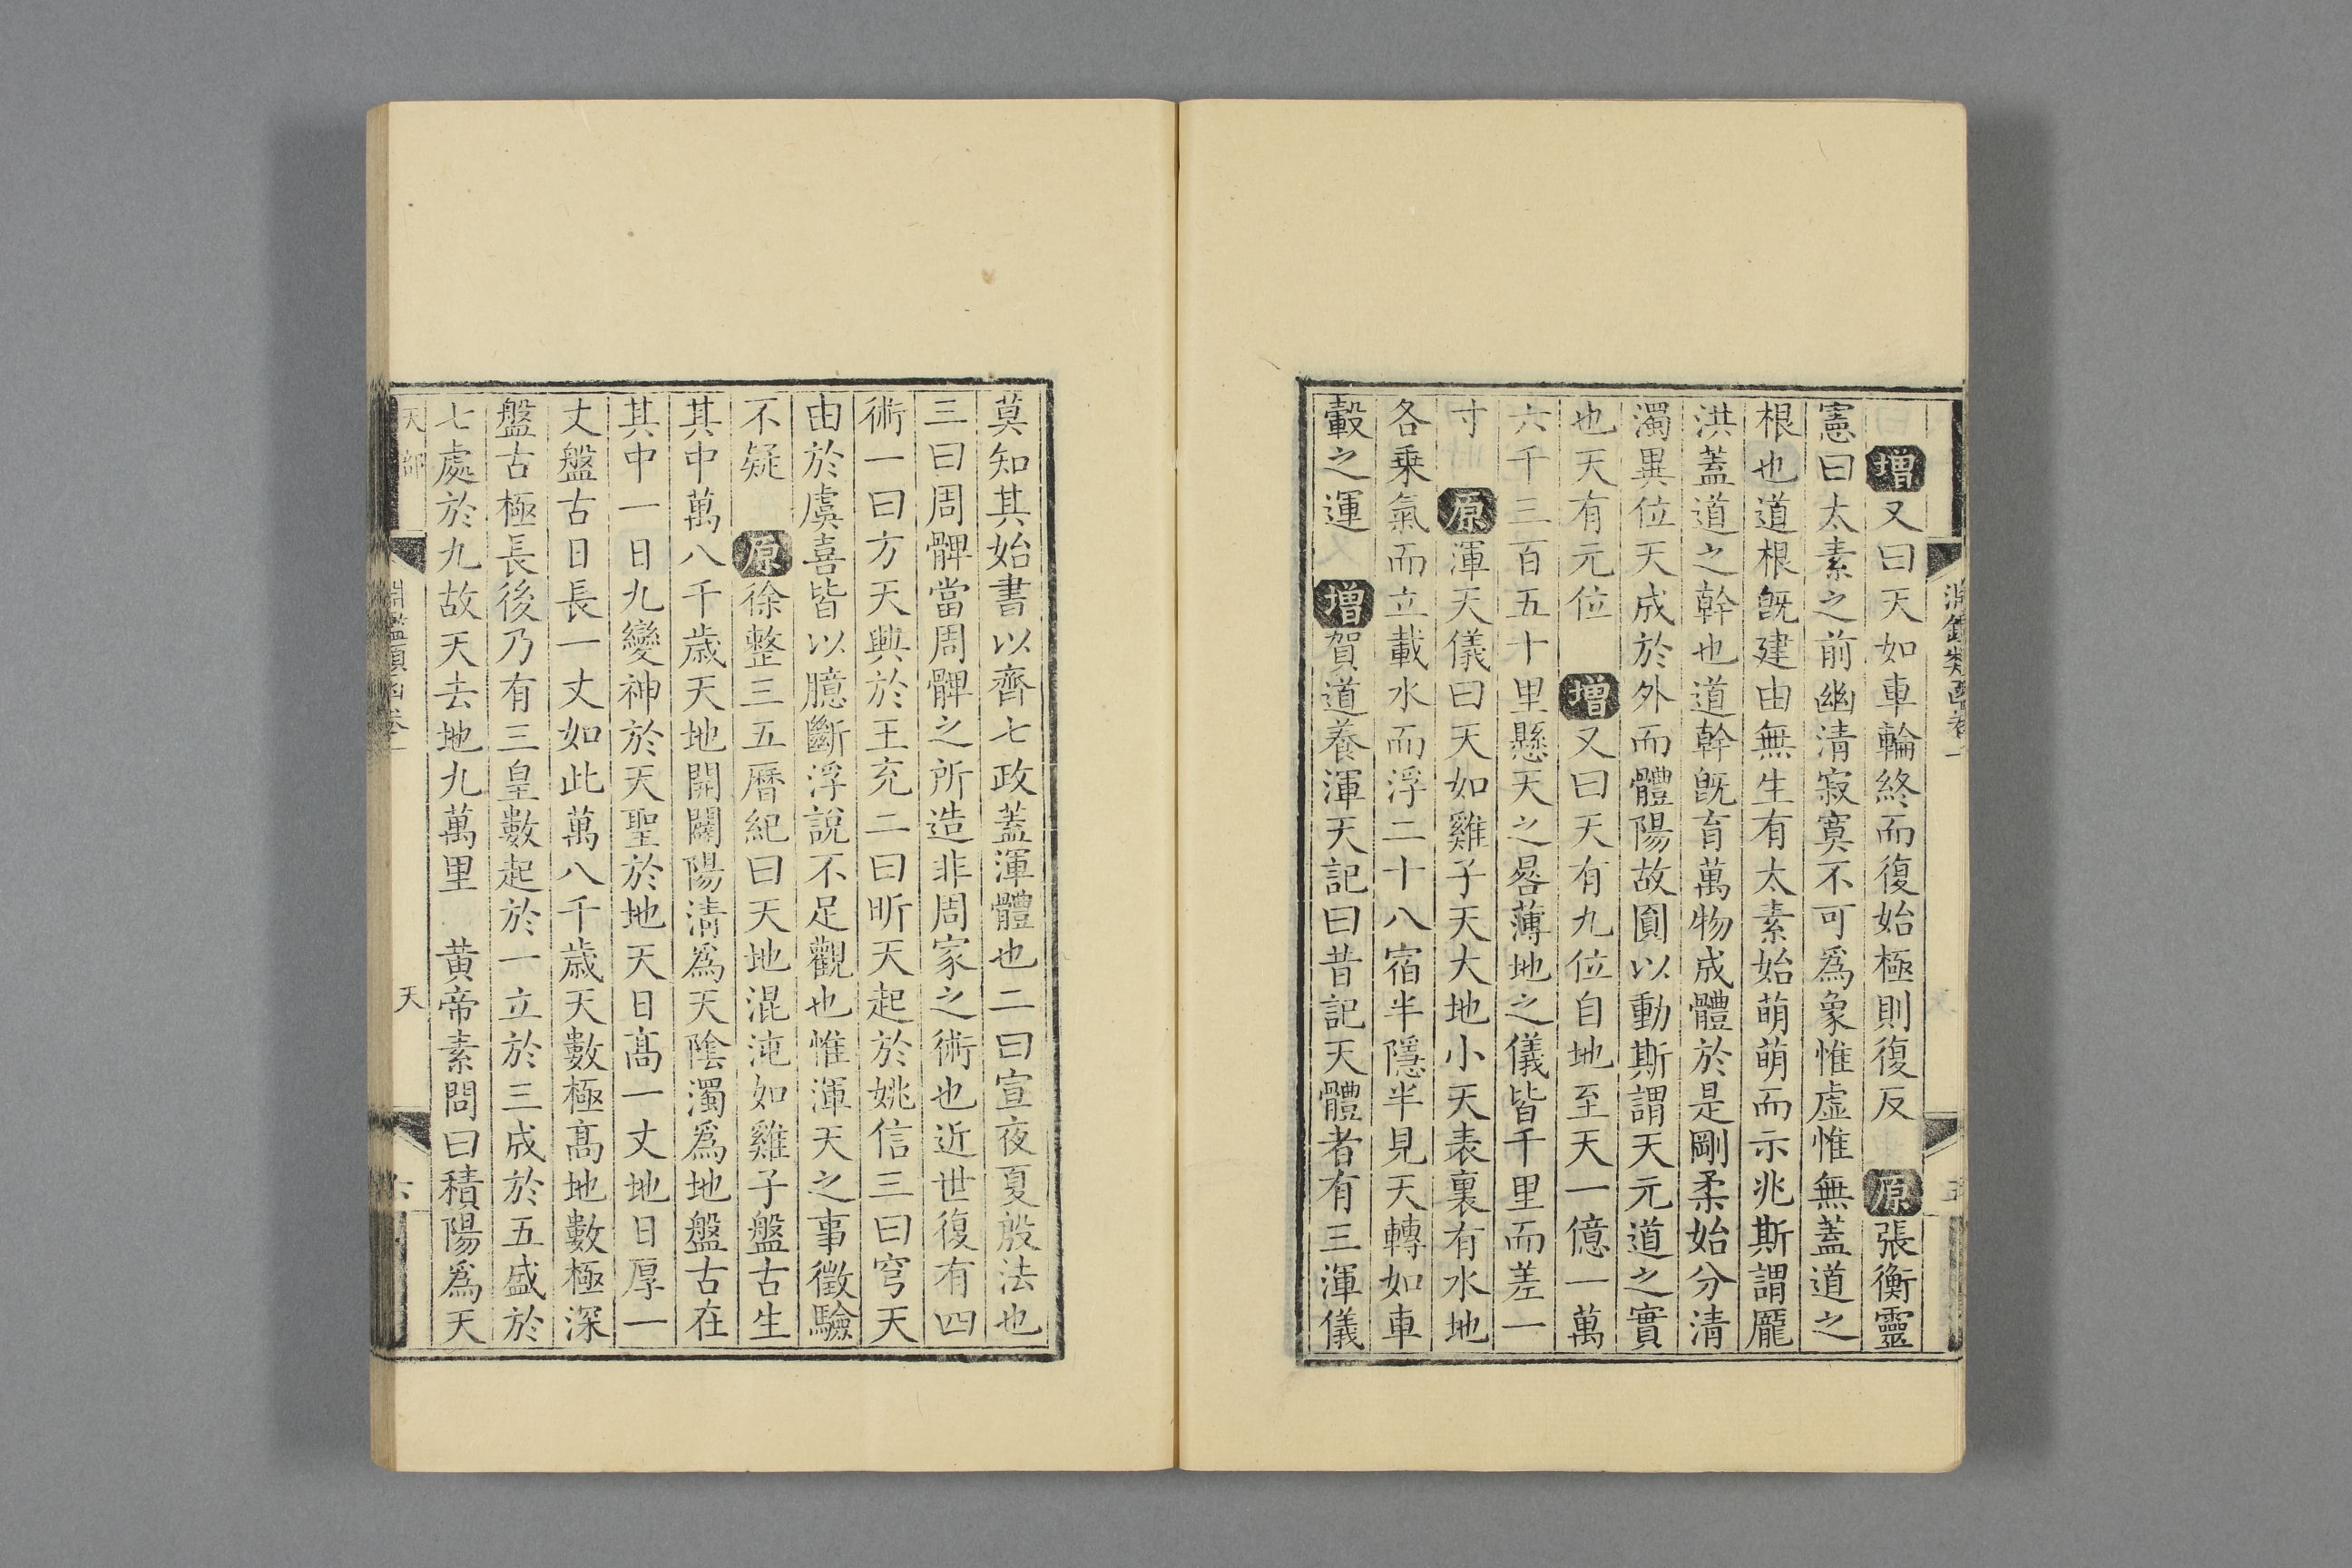 淵鑑類函卷一
增又曰天如車輪終而復始極則復反　原張衡靈
憲曰太素之前幽清寂寞不可爲象惟虛惟無蓋道之
根也道根旣建由無生有太素始萌萌而示兆斯謂龎
洪蓋道之幹也道幹旣育萬物成體於是剛柔始分清
濁異位天成於外而體陽故圓以動斯謂天元道之實
也天有元位　增又曰天有九位自地至天一億一萬
六千三百五十里懸天之晷薄地之儀皆千里而差一
寸　原渾天儀曰天如雞子天大地小天表裏有水地
各乗氣而立載水而浮二十八宿半隱半見天轉如車
轂之運　增賀道養渾天記曰昔記天體者有三渾儀
莫知其始書以齊七政蓋渾體也二曰宣夜夏殷法也
三曰周髀當周髀之所造非周家之術也近世復有四
術一曰方天興於王充二曰昕天起於姚信三曰穹天
由於虞喜皆以臆斷浮說不足觀也惟渾天之事徵驗
不疑　原徐整三五曆紀曰天地混沌如雞子盤古生
其中萬八千歲天地開闢陽清爲天陰濁爲地盤古在
其中一日九變神於天聖於地天日高一丈地日厚一
丈盤古日長一丈如此萬八千歲天數極高地數極深
盤古極長後乃有三皇數起於一立於三成於五盛於
七處於九故天去地九萬里　黄帝素問曰積陽爲天
天部
天
淵鑑類函卷一
六